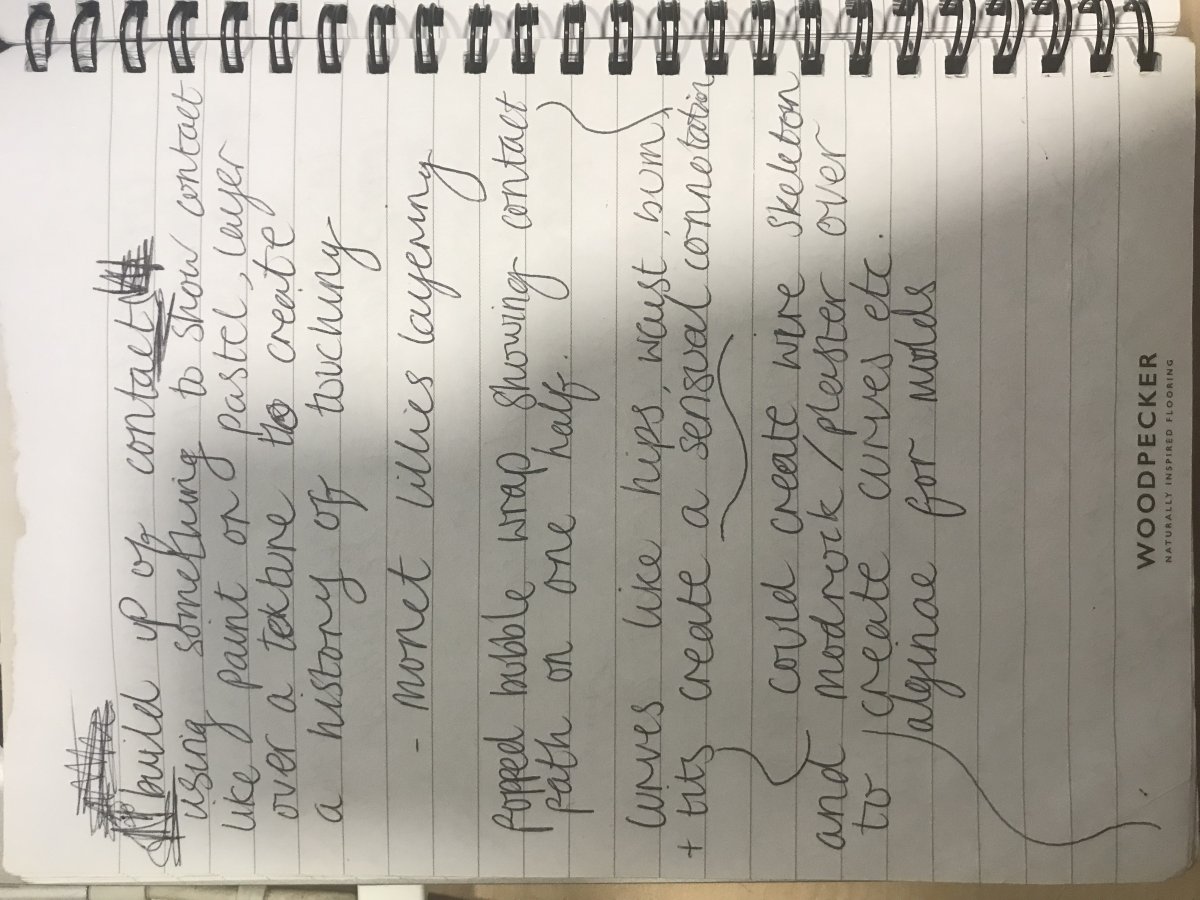 build up of contact
using something to show contact
like paint or pastel, layer
over a texture to create
a history of touching
- monet lillies layering
Popped bubble wrap showing contact
path on one half.
Curves like hips, waist, bum,
+ tits create a sensual connotation
could create wire skeleton
and modrock/plaster over
to create curves etc.
alginae for molds
WOODPECKER
NATURALLY INSPIRED FLOORING